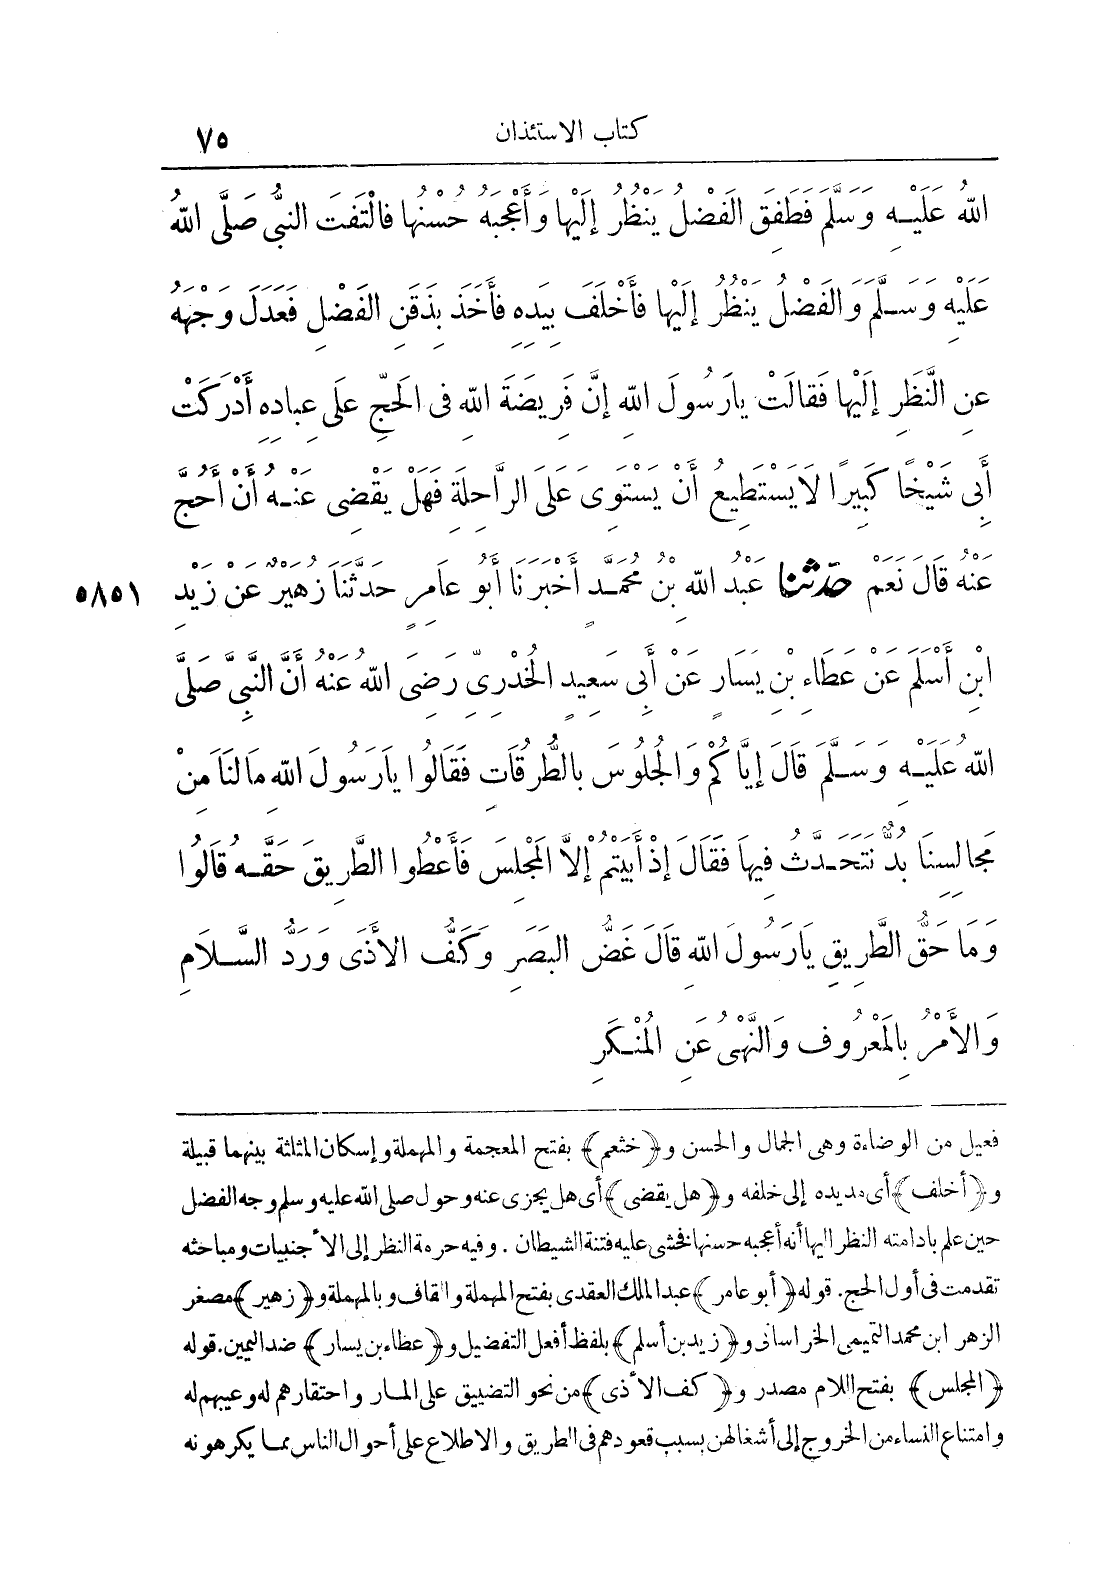 كتاب الاستئذان ٧٥
اللهُ عَلَيْهِ وَسَلَّمَ فَطَفِقَ الفَضْلُ يَنْظُرُ إِلَيْها وَأَعْجَبَهُ حُسْنُها فَالْتَفَتَ النبيُّ صَلَّى اللهُ
عَلَيْهِ وَسَلَّمَ وَالفَضْلُ يَنْظُرُ إِلَيْها فَأَخْلَفَ بِيَدِهِ فَأَخَذَ بِذَقَنِ الفَضْلِ فَعَدَلَ وَجْهَهُ
عنِ النَّظَرِ إِلَيْها فَقالَتْ يارَسُولَ اللهِ إنَّ فَرِيضَةَ اللهِ فى الحَجِّ علَى عِبادِهِ أَدْرَكَتْ
أَبِى شَيْخًا كَبِيرًا لَا يَسْتَطِيعُ أَنْ يَسْتَوِىَ عَلَى الرَّاحِلَةِ فَهَلْ يَقْضِى عَنْهُ أَنْ أَحُجَّ
عَنْهُ قَالَ نَعَمْ حدثنا عَبْدُ اللهِ بْنُ مُحَمَّدٍ أَخْبَرَنَا أَبُو عَامِرٍ حَدَّثَنَا زُهَيْرٌ عَنْ زَيْدِ ٥٨٥١
ابْنِ أَسْلَمَ عَنْ عَطَاءِ بْنِ يَسَارٍ عَنْ أَبِى سَعِيدٍ الخُدْرِىِّ رَضِىَ اللهُ عَنْهُ أَنَّ النَّبِىَّ صَلَّى
اللهُ عَلَيْهِ وَسَلَّمَ قَالَ إِيَّاكُمْ وَالجُلُوسَ بِالطُّرُقَاتِ فَقَالُوا يَا رَسُولَ اللهِ مَا لَنَا مِنْ
مَجَالِسِنَا بُدٌّ نَتَحَدَّثُ فِيهَا فَقَالَ إِذْ أَبَيْتُمْ إِلَّا المَجْلَسَ فَأَعْطُوا الطَّرِيقَ حَقَّهُ قَالُوا
وَمَا حَقُّ الطَّرِيقِ يَا رَسُولَ اللهِ قَالَ غَضُّ البَصَرِ وَكَفُّ الأَذَى وَرَدُّ السَّلَامِ
وَالأَمْرُ بِالمَعْرُوفِ وَالنَّهْىُ عَنِ المُنْكَرِ
فعيل من الوضاءة وهى الجمال والحسن و﴿خثعم﴾ بفتح المعجمة والمهملة وإسكان المثلثة بينهما قبيلة
و﴿أخلف﴾ أى مد يده إلى خلفه و﴿هل يقضى﴾ أى هل يجزى عنه وحول صلى الله عليه وسلم وجه الفضل
حين علم بادامته النظر اليها أنه أعجبه حسنها فخشى عليه فتنة الشيطان . وفيه حرمة النظر إلى الأجنبيات ومباحثه
تقدمت فى أول الحج. قوله ﴿أبو عامر﴾ عبد الملك العقدى بفتح المهملة والقاف وبالمهملة و﴿زهير﴾ مصغر
الزهر ابن محمد التميمى الخراسانى و﴿زيد بن أسلم﴾ بلفظ أفعل التفضيل و﴿عطاء بن يسار﴾ ضد اليمين. قوله
﴿المجلس﴾ بفتح اللام مصدر و﴿كف الأذى﴾ من نحو التضييق على المار واحتقارهم له وعيبهم له
وامتناع النساء من الخروج إلى أشغالهن بسبب قعودهم فى الطريق والاطلاع على أحوال الناس مما يكرهونه